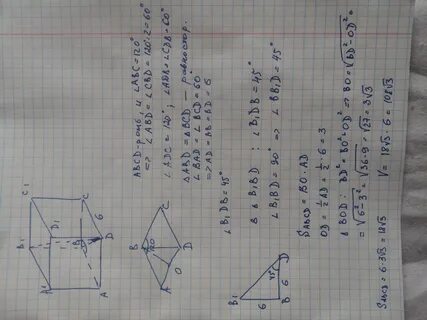 ABCD-ромб, и ∠ABC=120°
=> ∠ABD=∠CBD=120°:2=60°
∠ADC=120°; ∠ADB=∠CDB=60°
△ABD=△BCD — равностор.
∠BAD=∠BCD=60°
=> AD=AB=BD=6
∠B₁DB=45°
△B₁BD: ∠B₁DB=45°
∠B₁BD=90° => ∠BB₁D=45°
S_ABCD=BO·AD
OD=½AD=½·6=3
△BOD: BD²=BO²+OD² => BO=√BD²-OD²=
=√6²-3²=√36-9=√27=3√3
S_ABCD=6·3√3=18√3
V=18√3·6=108√3
B₁
C₁
A₁
D₁
B
C
A
D
6
B
120
A
C
O
D
B₁
6
45°
B
6
D